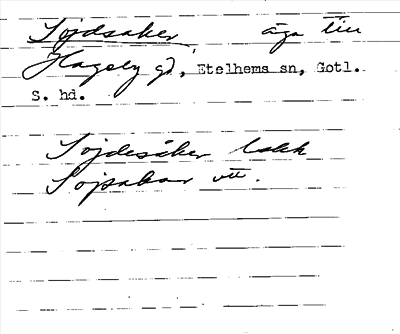 Söjdsaker äga till
Hageby gd, Etelhems sn, Gotl.
S. hd.
Söjdesåker
Söjsakar vtt.